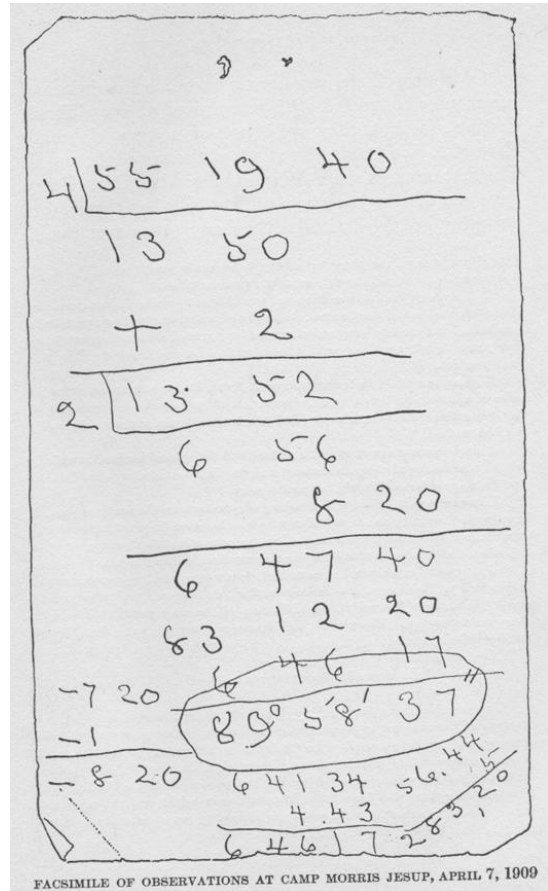 4 55 19 40
13 50
+ 2
2 13 52
6 56
8 20
6 47 40
83 12 20
6 46 17
-7 20 89° 58' 37"
-1
- 8 20 6 41 34 56.44
4.43
6 46 17
FACSIMILE OF OBSERVATIONS AT CAMP MORRIS JESUP, APRIL 7, 1909